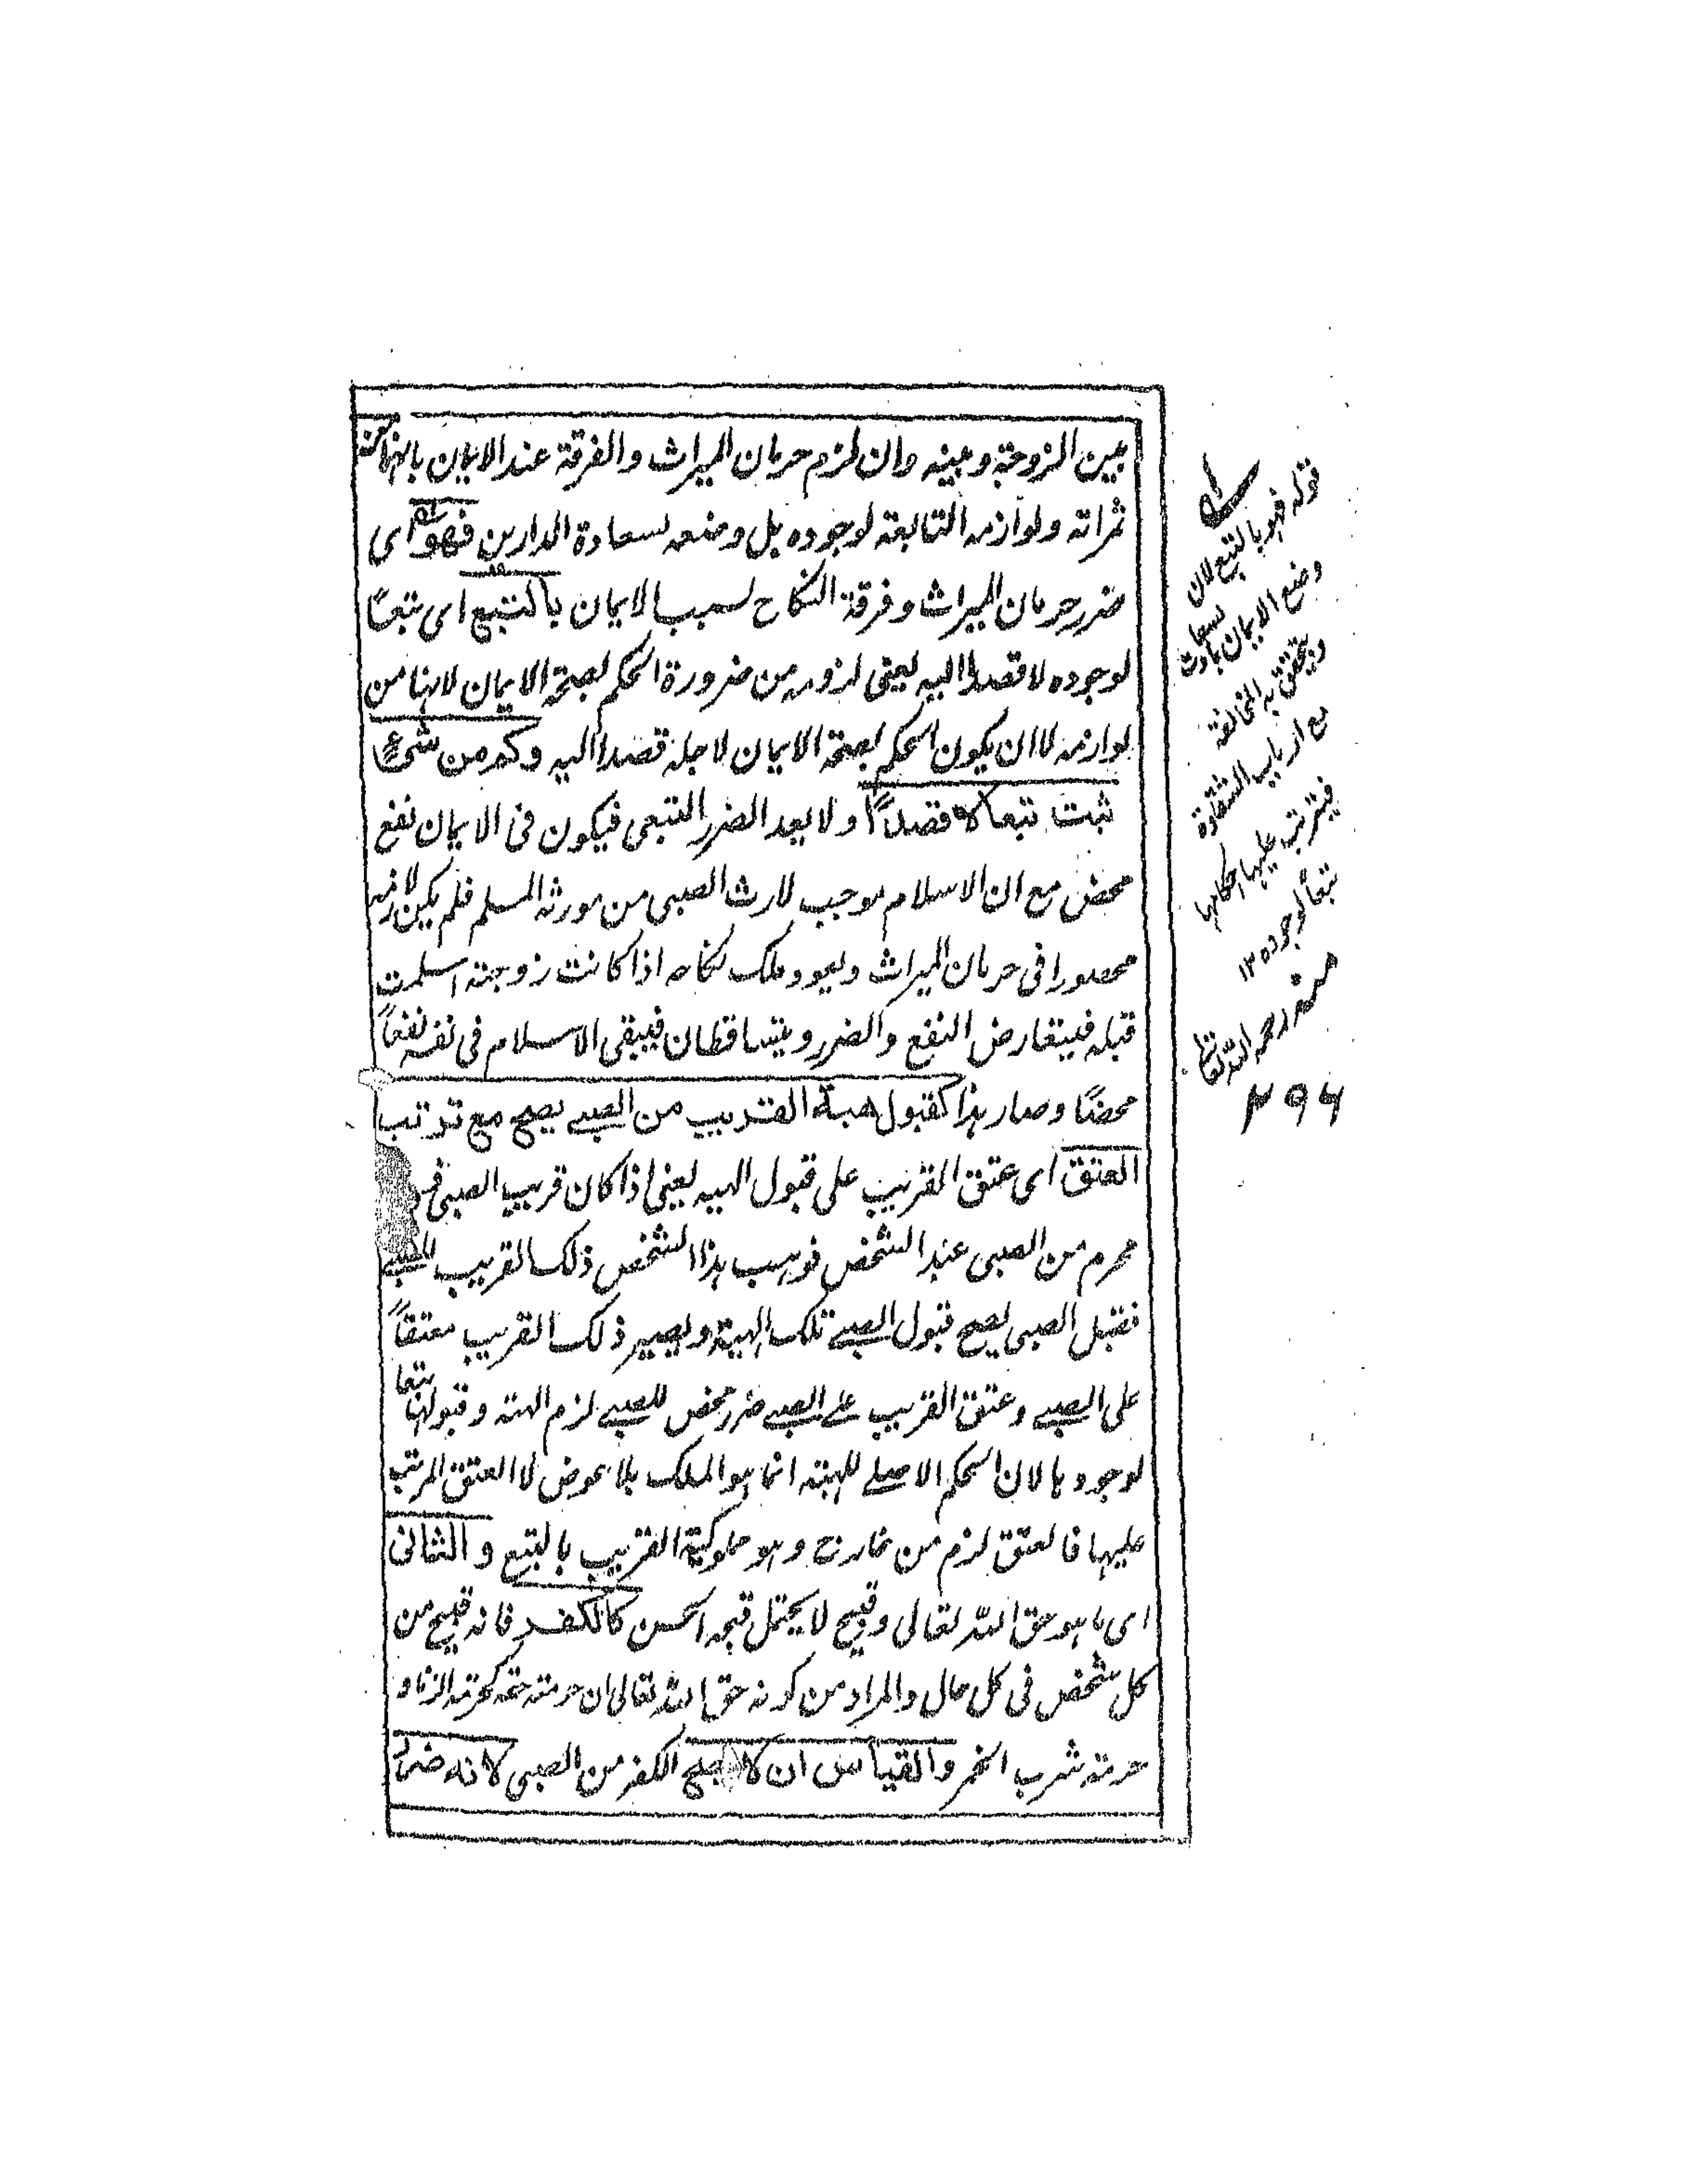 بين الزوجة وبينه وان لزم حرمان الميراث والفرقة عند الايمان بانهما من
ثمراته ولوازمه التابعة لوجوده بل وضعه لسعادة الدارين فهو اى
ضرر حرمان الميراث وفرقة النكاح بسبب الايمان بالتبع اى تبعًا
لوجوده لا قصدا اليه يعنى لزومه من ضرورة الحكم بصحة الايمان لانها من
لوازمه لا ان يكون الحكم بصحة الايمان لاجله قصدا اليه وكم من شئ
ثبت تبعا لا قصدًا ولا يعد الضرر التبعى فيكون فى الايمان نفع
محض مع ان الاسلام موجب لارث الصبى من مورثه المسلم فلم يكن لازمه
محصورا فى حرمان الميراث ويعود ملك نكاحه اذا كانت زوجته اسلمت
قبله فيتعارض النفع والضرر ويتساقطان فيبقى الاسلام فى نفسه نفعًا
محضًا وصار هذا كقبول هبة القريب من الصبي يصح مع ترتب
العتق اى عتق القريب على قبول الهبه يعنى اذا كان قريب الصبى
محرم من الصبى عند الشخص فوهب هذا الشخص ذلك القريب للصبي
فقبل الصبى يصح قبول الصبي تلك الهبة ويصير ذلك القريب معتقاً
على الصبي وعتق القريب علے الصبي ضرر محض للصبي لزم الهبة وقبولها تبعا
لوجودها لان الحكم الاصلے للهبة انما هو الملك بلا عوض لا العتق المرتب
عليها فالعتق لزم من خارج وهو مملوكية القريب بالتبع والثانى
اى ما هو حق الله تعالى وقبيح لا يحتمل قبحه الحسن كالكفر فانه قبيح من
كل شخص فى كل حال والمراد من كونه حق الله تعالى ان حرمته حقه كحرمة الزنا و
حرمته شرب الخمر والقياس ان لا يصح الكفر من الصبى لانه ضرر
قوله فهو بالتبع لان
وضع الايمان لسعادة
ويتحقق به المخالفة
مع ارباب الشقاوة
فيترتب عليها احكامها
تبعًا لوجوده ١٢
منه رحمه الله تعالى
٢٩٦